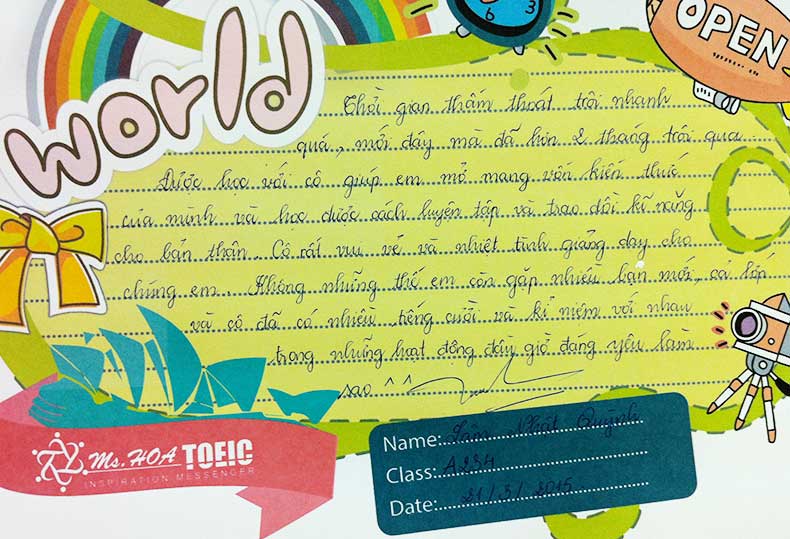 world
6 3
OPEN
Thời gian thấm thoát trôi nhanh
quá, mới đây mà đã hơn 2 tháng trôi qua
Được học với cô giúp em mở mang vốn kiến thức
của mình và học được cách luyện tập và trao dồi kĩ năng
cho bản thân. Cô rất vui vẻ và nhiệt tình giảng dạy cho
chúng em. Không những thế em còn gặp nhiều bạn mới, cả lớp
và cô đã có nhiều tiếng cười và kỉ niệm với nhau
trong những hoạt động đầu giờ đáng yêu làm
sao ^^
Ms. HOA TOEIC
INSPIRATION MESSENGER
Name: Nhật Quỳnh
Class: A234
Date: 21/3/2015